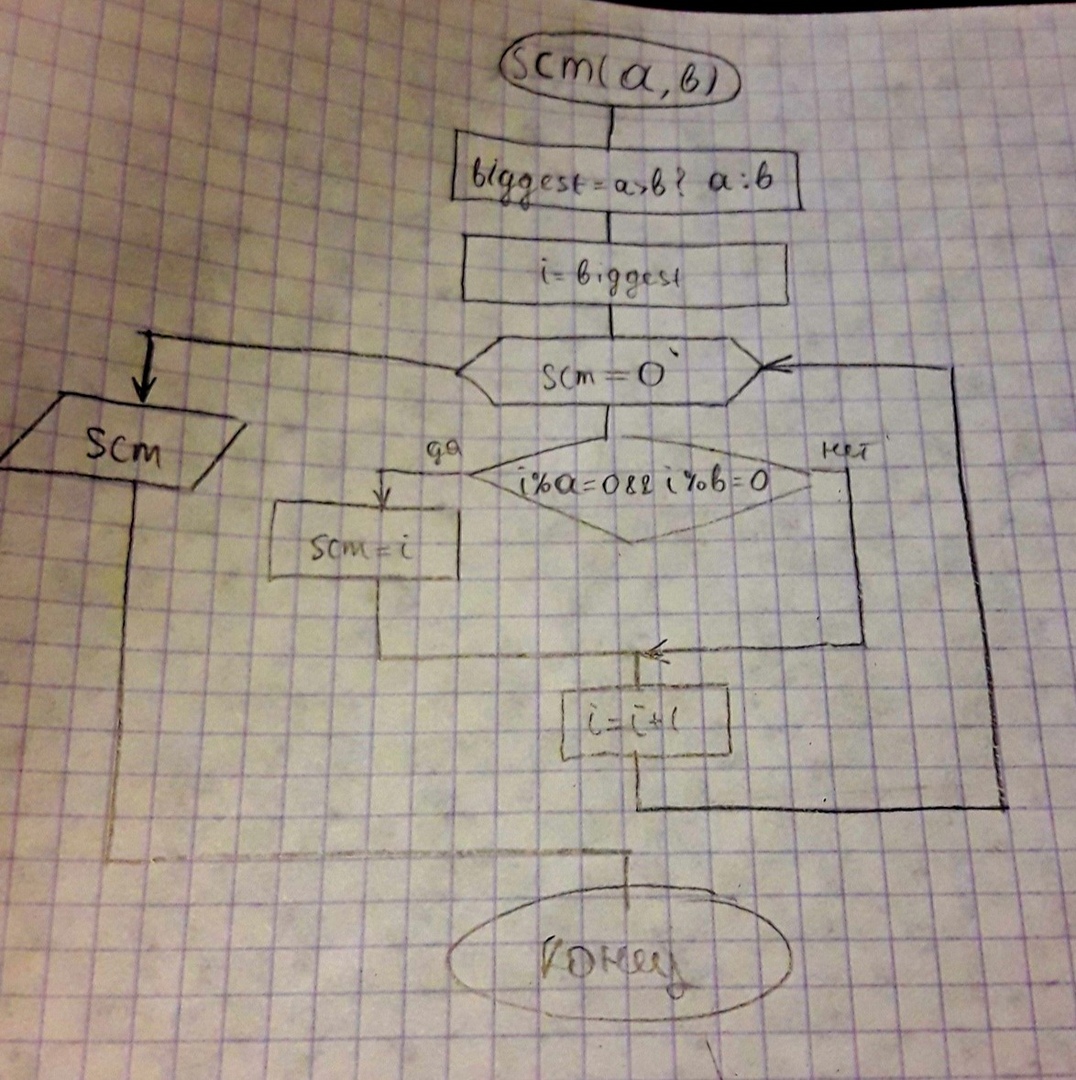 scm(a,b)
biggest=a>b? a:b
i=biggest
scm=0
scm
да
нет
i%a=0&& i%b=0
scm=i
i=i+1
конец